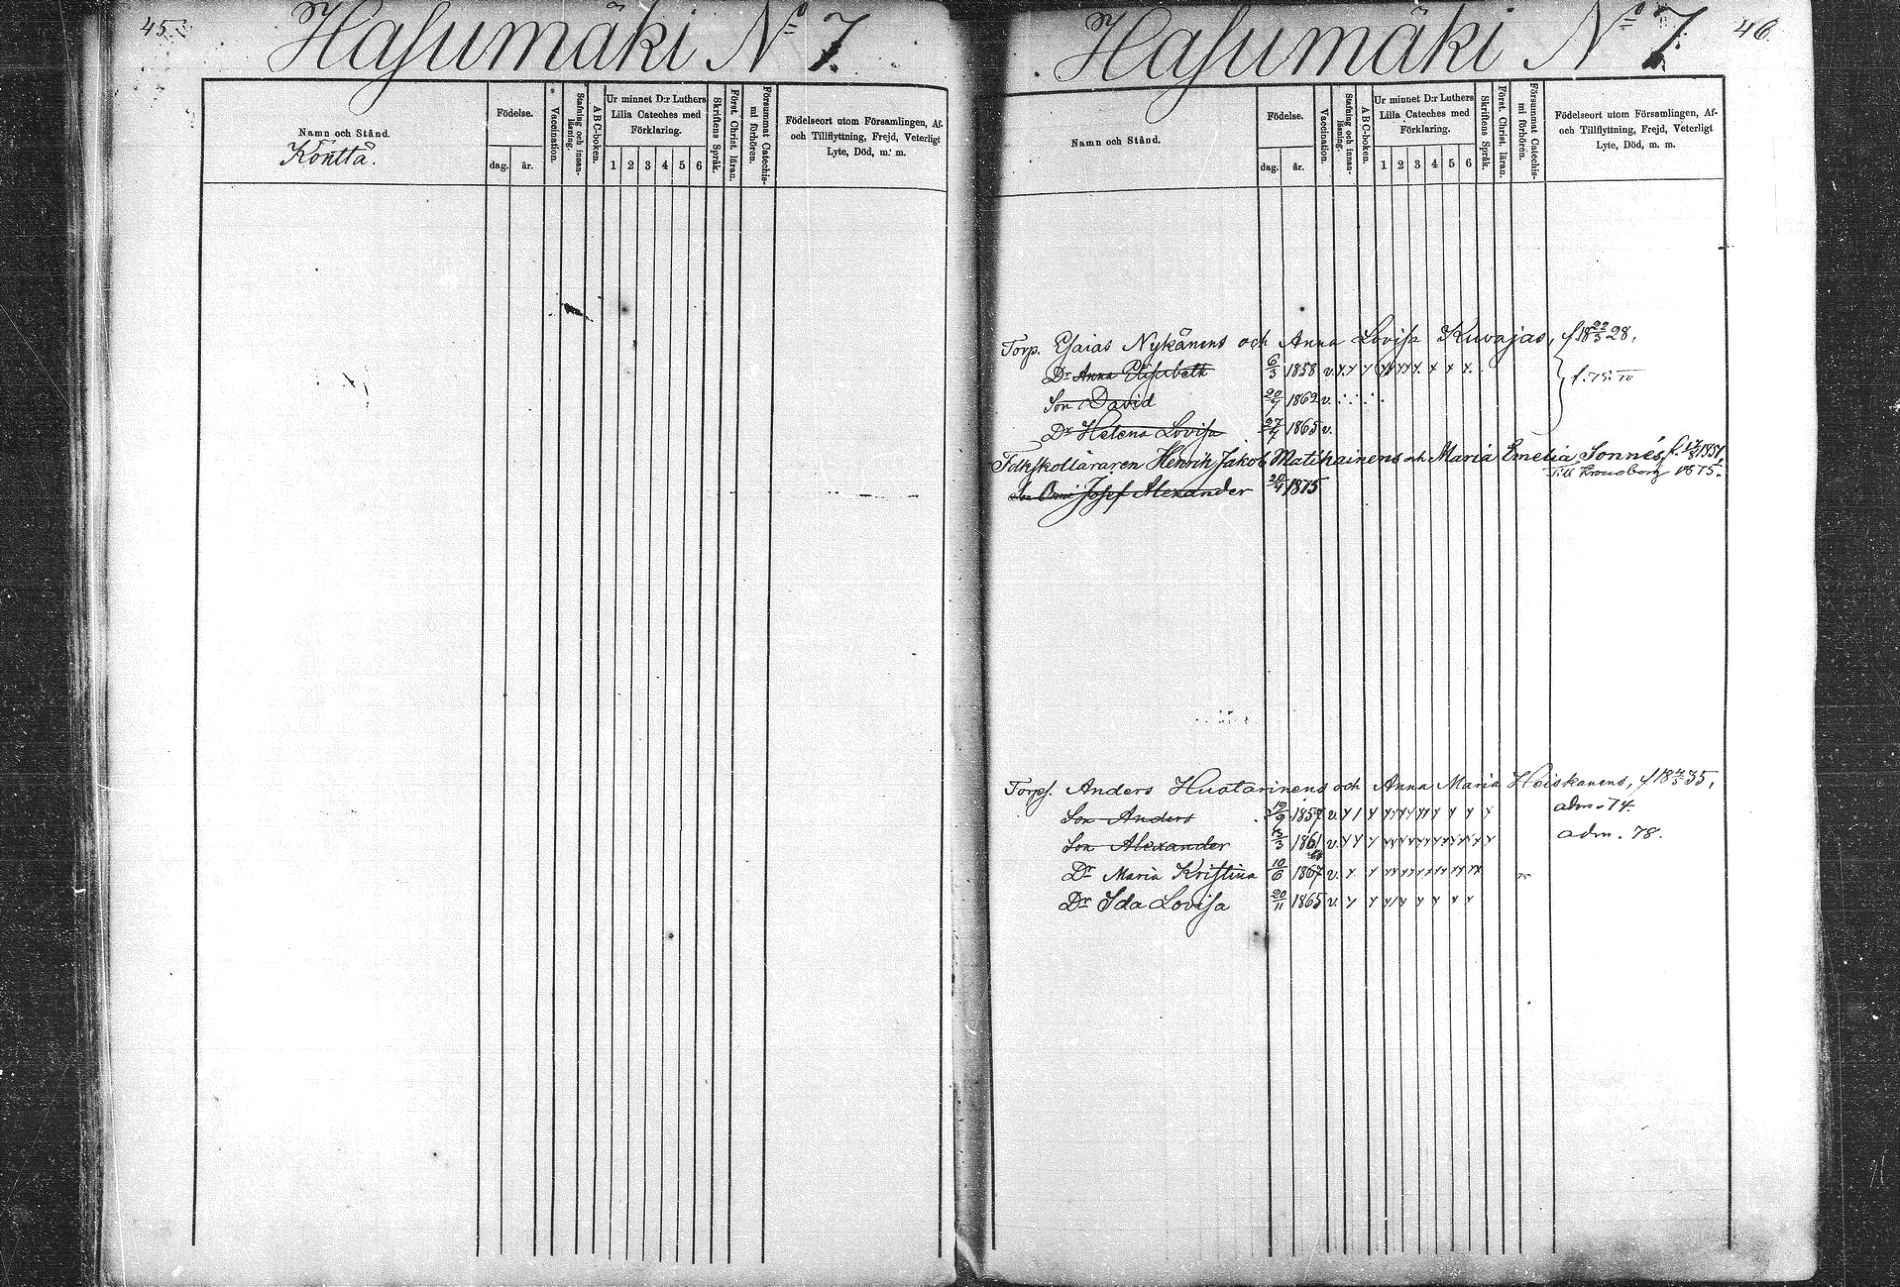 45.
Hasumäki No 7.
Namn och Stånd.
Födelse.
dag.
år.
Vaccination.
Stafning och innanläsning.
A B C-boken.
Ur minnet D:r Luthers Lilla Cateches med Förklaring.
1 2 3 4 5 6
Skriftens Språk.
Först. Christ. läran.
Försummat Catechismi förhören.
Födelseort utom Församlingen, Af- och Tillflyttning, Frejd, Veterligt Lyte, Död, m. m.
Könttä.
46.
Hasumäki No 7.
Namn och Stånd.
Födelse.
dag.
år.
Vaccination.
Stafning och innanläsning.
A B C-boken.
Ur minnet D:r Luthers Lilla Cateches med Förklaring.
1 2 3 4 5 6
Skriftens Språk.
Först. Christ. läran.
Försummat Catechismi förhören.
Födelseort utom Församlingen, Af- och Tillflyttning, Frejd, Veterligt Lyte, Död, m. m.
Torp. Esaias Nykänens och Anna Lovisa Kuvajas, f. 18 22/5 28.
Dr Anna Elisabeth 6/3 1858 v. x x x x x x x x x x
Son David 20/7 1862 v.
Dr Helena Lovisa 27/7 1865 v.
Folkskolläraren Henrik Jakob Matikainens och Maria Emelia Sonnés f. 1851
Till Kronoborg 1875.
Son Josef Alexander 20/4 1875
Torp. Anders Huotarinens och Anna Maria Heiskanens, f. 18 35,
Son Anders 19/9 1857 v. adm. 74.
Son Alexander 13/3 1861 v. adm. 78.
Dr Maria Kristina 10/6 1867 v.
Dr Ida Lovisa 20/11 1865 v.